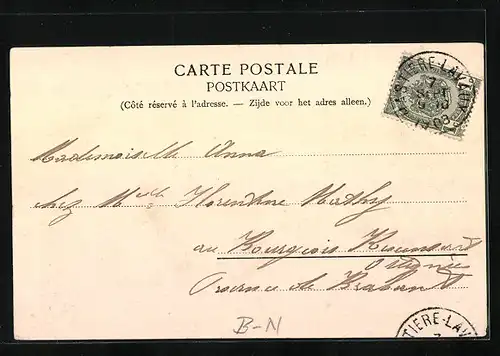 CARTE POSTALE
POSTKAART
(Côté réservé à l'adresse. — Zijde voor het adres alleen.)
HASTIERE-LAVAUX
7
1903
Mademoiselle Anna
chez Mlle Florentine Mathy
au Bourgeois
Province de Brabant
TIERE-LAV
B-N